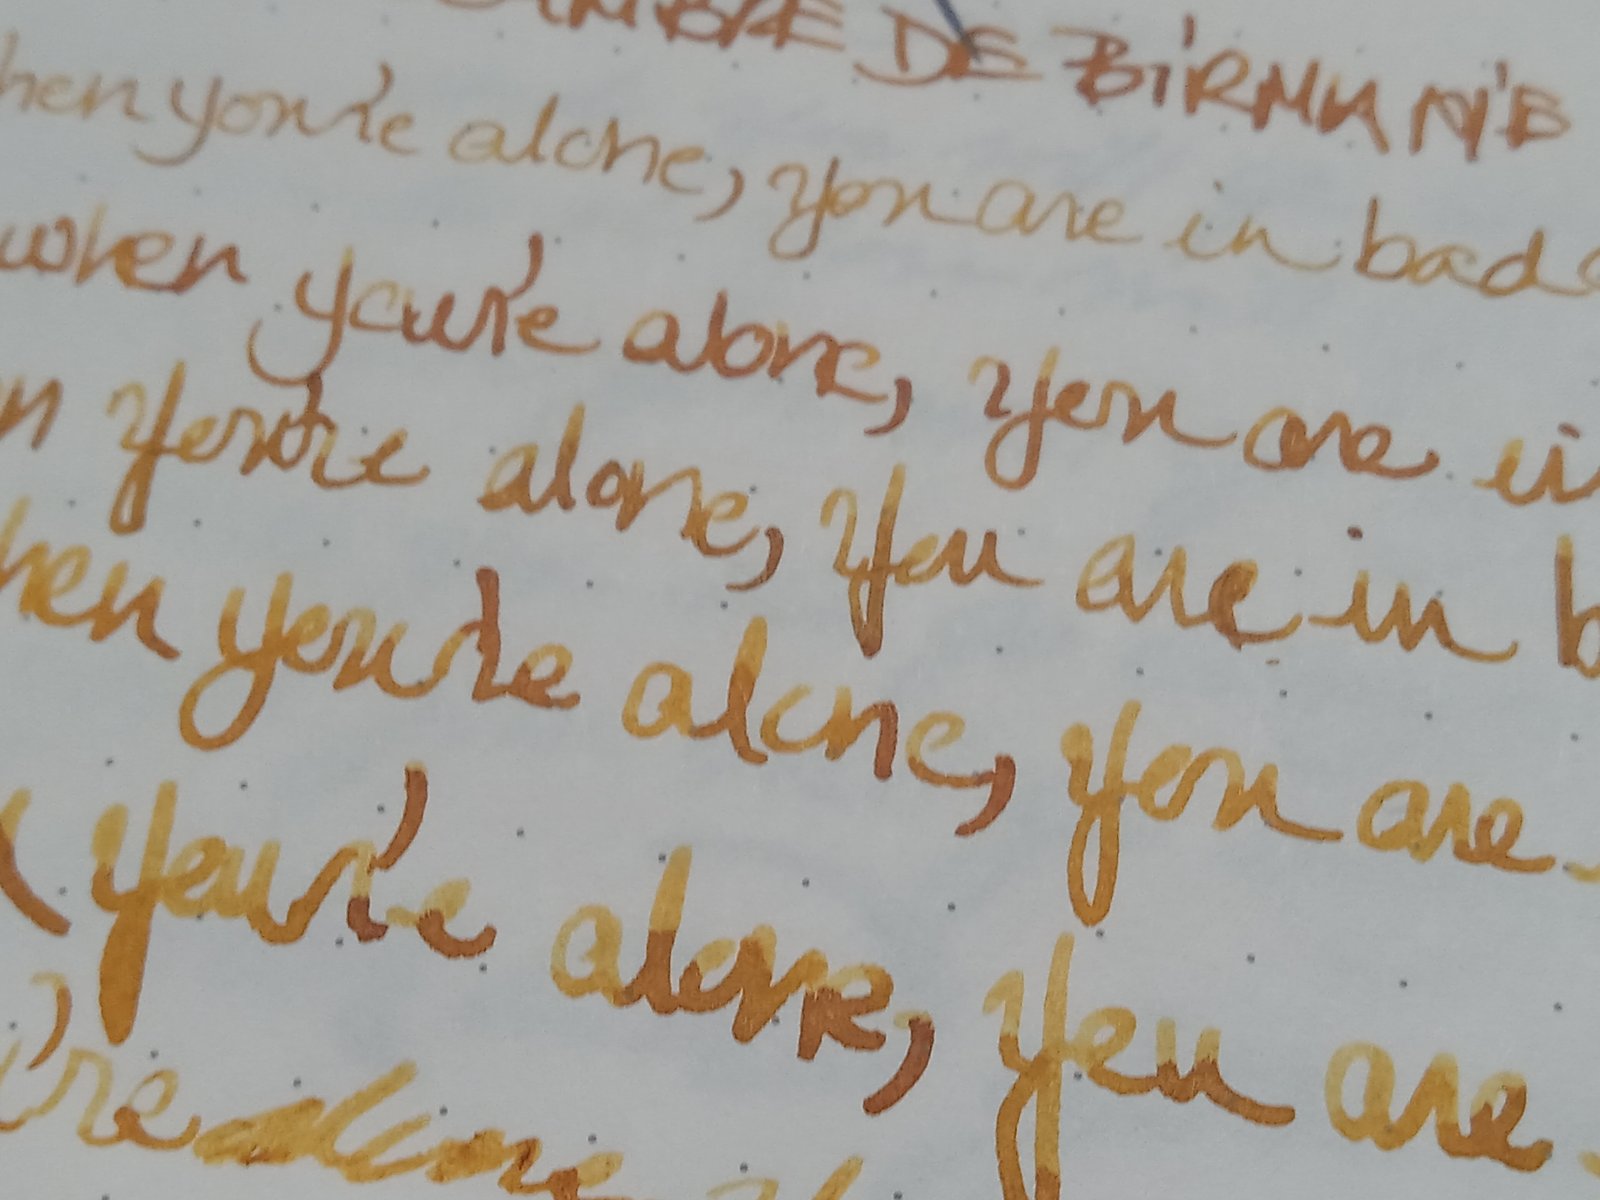 DE BIRMANIE
hen you're alone, you are in bad
when you're alone, you are in
n you're alone, you are in b
hen you're alone, you are
you're alone, you are
're alone